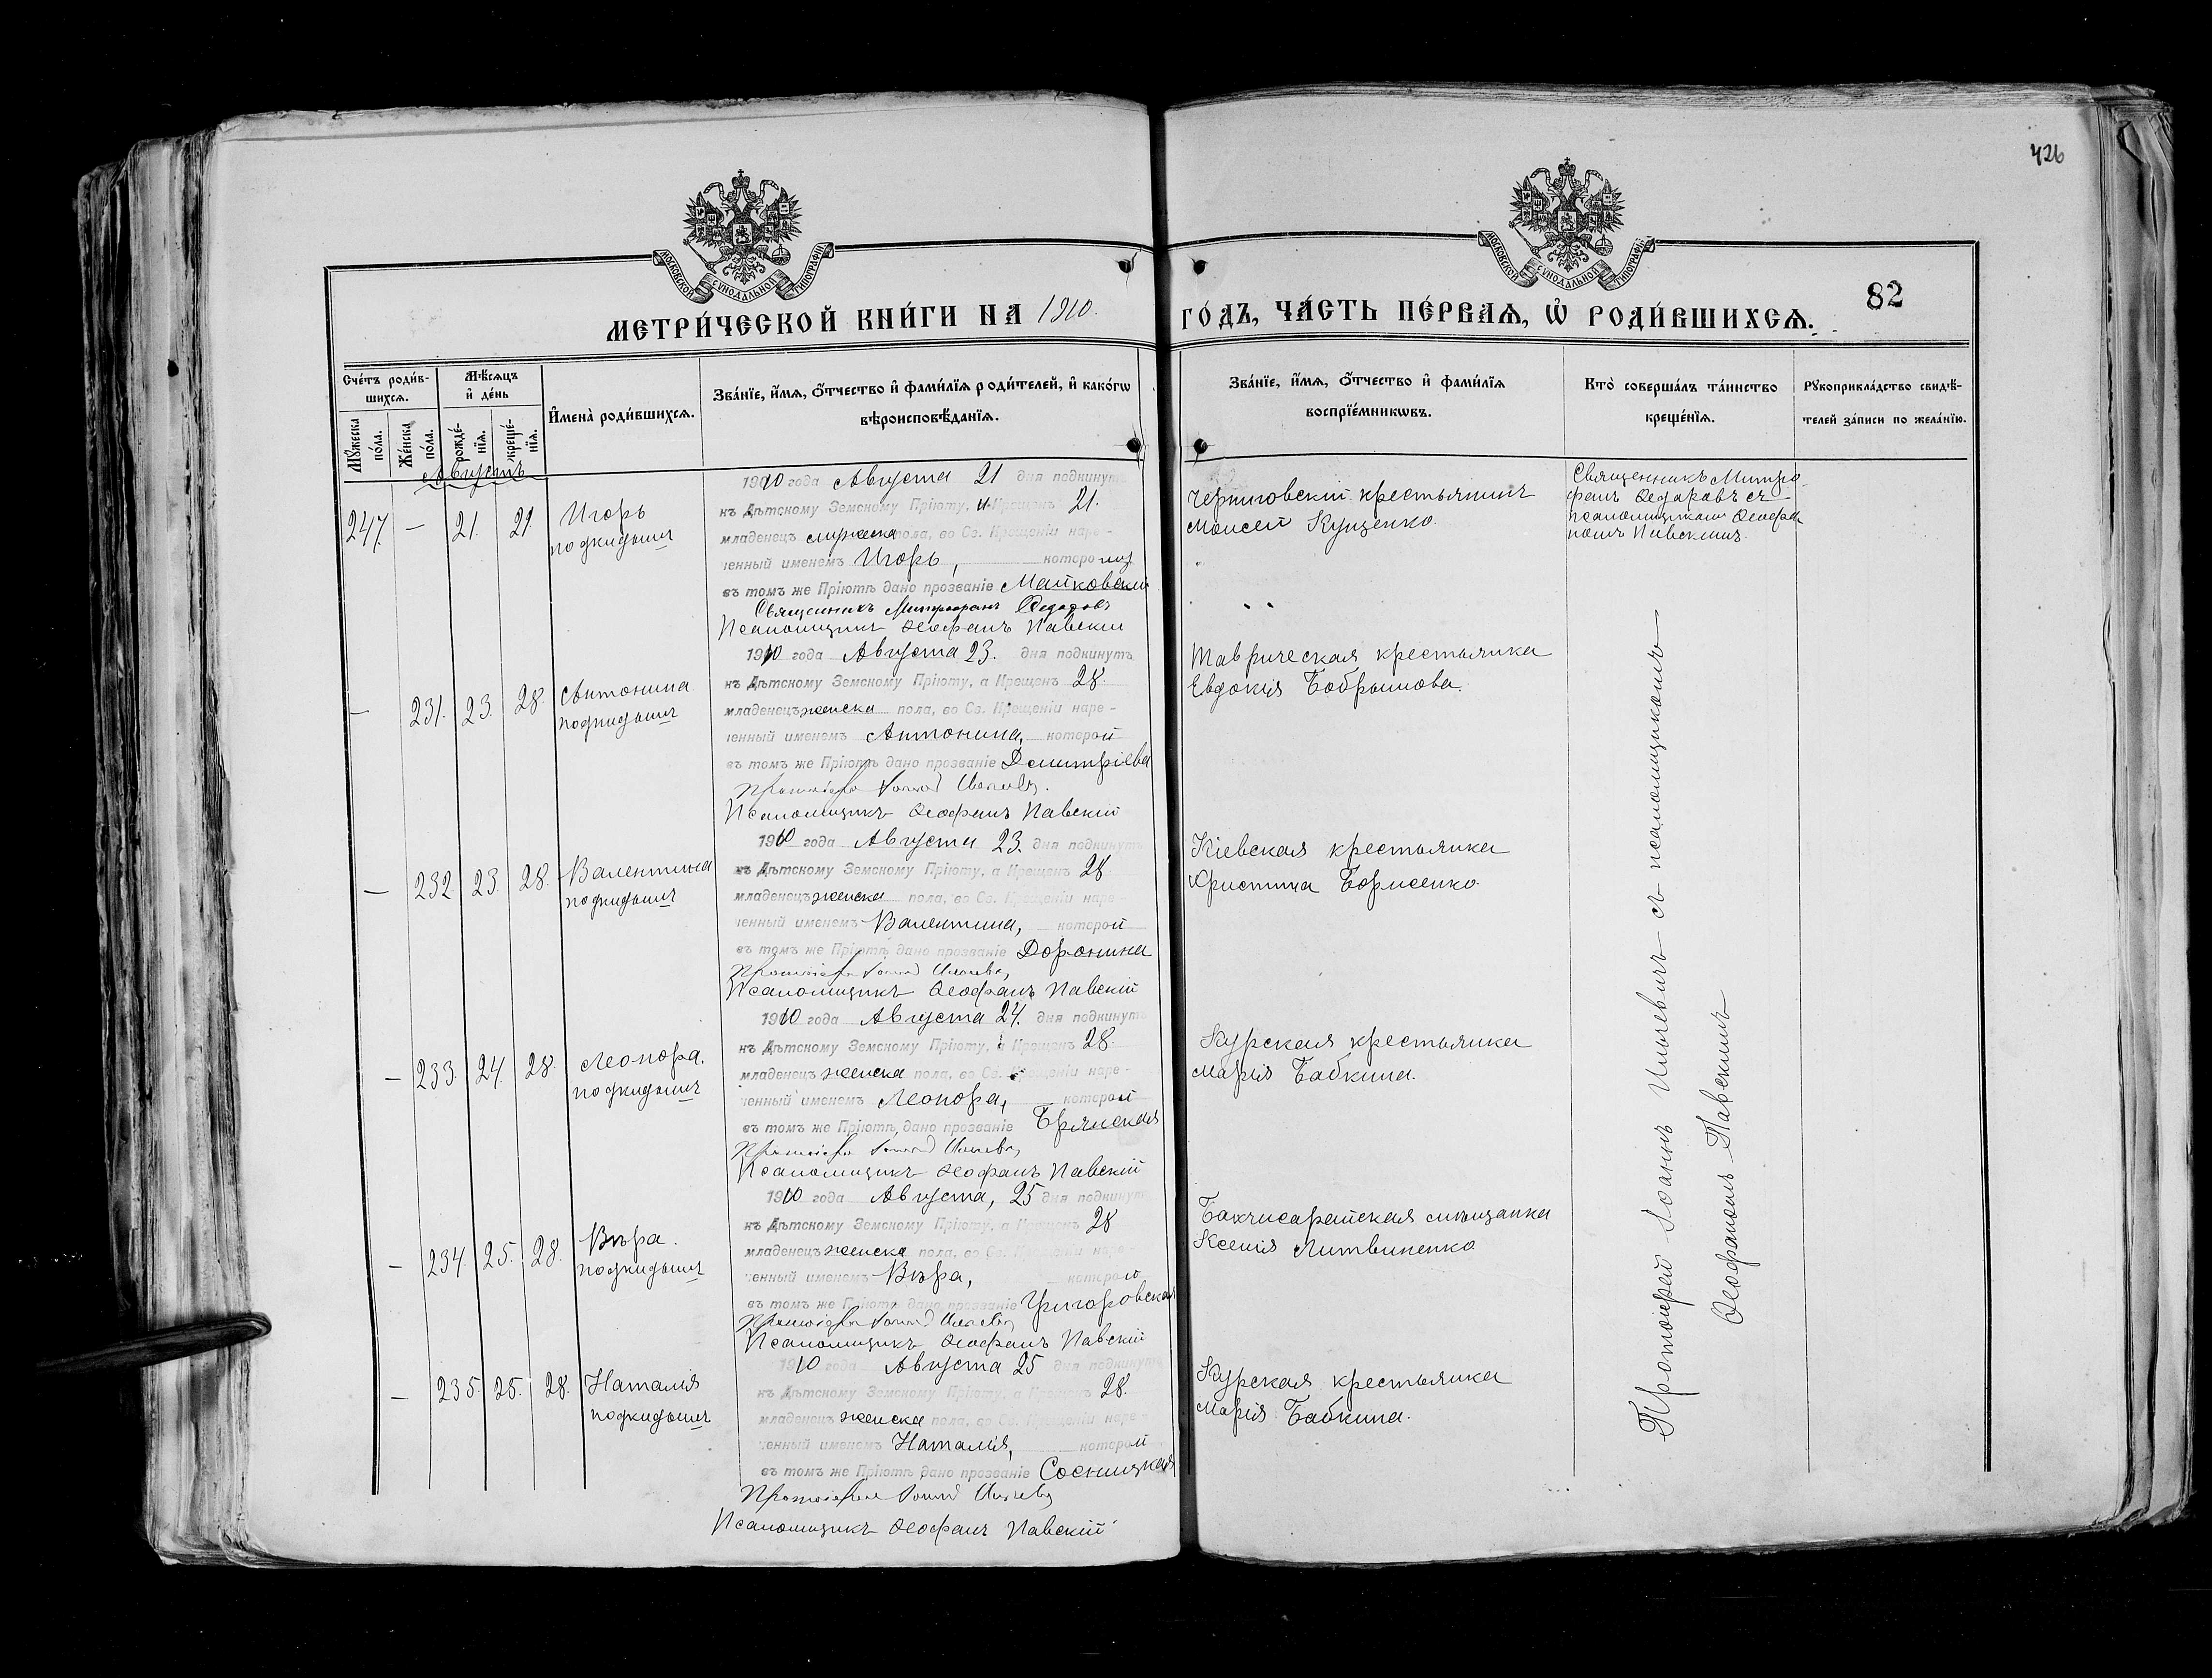 426
МОСКОВСКОЙ СѴНОДАЛЬНОЙ ТИПОГРАФІИ
МОСКОВСКОЙ СѴНОДАЛЬНОЙ ТИПОГРАФІИ
МЕТРИ́ЧЕСКОЙ КНИ́ГИ НА 1910. ГО́ДЪ, ЧА́СТЬ ПЕ́РВАѦ, Ѽ РОДИ́ВШИХСѦ. 82
Сче́тъ роди́в-
шихсѧ.
Мꙋ́жеска по́ла.
Же́нска по́ла.
Мѣ́сѧцъ
и҆ де́нь
рожде́-нїѧ.
креще́-нїѧ.
И҆мена̀ роди́вшихсѧ.
Зва́нїе, и҆́мѧ, ѻ҆́тчество и҆ фами́лїѧ роди́телей, и҆ како́гѡ
вѣроисповѣ́данїѧ.
Зва́нїе, и҆́мѧ, ѻ҆́тчество и҆ фами́лїѧ
воспрїе́мникѡвъ.
Кто̀ соверша́лъ та́инство
креще́нїѧ.
Рꙋкоприкла́дство свидѣ́-
телей за́писи по жела́нїю.
Августъ
247. — 21. 21 Игорь
подкидышъ
1910 года Августа 21 дня подкинутъ
къ Дѣтскому Земскому Пріюту, и Крещенъ 21.
младенецъ мужеска пола, во Св. Крещеніи наре-
ченный именемъ Игорь, которому
въ томъ же Пріютѣ дано прозваніе Майковскій
Священникъ Митрофанъ Федоровъ
Псаломщикъ Ѳеофанъ Павскій
Черниговскій крестьянинъ
Моисей Куценко.
Священникъ Митро-
фанъ Федоровъ съ
псаломщикомъ Ѳеофа-
номъ Павскимъ.
— 231. 23. 28. Антонина
подкидышъ
1910 года Августа 23. дня подкинутъ
къ Дѣтскому Земскому Пріюту, а Крещенъ 28.
младенецъ женска пола, во Св. Крещеніи наре-
ченный именемъ Антонина, которой
въ томъ же Пріютѣ дано прозваніе Димитріева
Протоіерей Іоаннъ Ильевъ.
Псаломщикъ Ѳеофанъ Павскій
Таврическая крестьянка
Евдокія Бобрышова.
— 232. 23. 28. Валентина
подкидышъ
1910 года Августа 23. дня подкинутъ
къ Дѣтскому Земскому Пріюту, а Крещенъ 28.
младенецъ женска пола, во Св. Крещеніи наре-
ченный именемъ Валентина, которой
въ томъ же Пріютѣ дано прозваніе Доронина
Протоіерей Іоаннъ Ильевъ,
Псаломщикъ Ѳеофанъ Павскій
Кіевская крестьянка
Христина Борисенко.
— 233. 24. 28. Леонора.
подкидышъ
1910 года Августа 24. дня подкинутъ
къ Дѣтскому Земскому Пріюту, а Крещенъ 28.
младенецъ женска пола, во Св. Крещеніи наре-
ченный именемъ Леонора, которой
въ томъ же Пріютѣ дано прозваніе Брянская
Протоіерей Іоаннъ Ильевъ
Псаломщикъ Ѳеофанъ Павскій
Курская крестьянка
Марія Бабкина.
— 234. 25. 28. Вѣра.
подкидышъ
1910 года Августа, 25 дня подкинутъ
къ Дѣтскому Земскому Пріюту, а Крещенъ 28
младенецъ женска пола, во Св. Крещеніи наре-
ченный именемъ Вѣра, которой
въ томъ же Пріютѣ дано прозваніе Григоровская
Протоіерей Іоаннъ Ильевъ
Псаломщикъ Ѳеофанъ Павскій
Бахчисарайская мѣщанка
Ксенія Литвиненко
— 235. 25. 28. Наталія
подкидышъ
1910 года Августа 25 дня подкинутъ
къ Дѣтскому Земскому Пріюту, а Крещенъ 28.
младенецъ женска пола, во Св. Крещеніи наре-
ченный именемъ Наталія, которой
въ томъ же Пріютѣ дано прозваніе Сосницкая
Протоіерей Іоаннъ Ильевъ
Псаломщикъ Ѳеофанъ Павскій
Курская крестьянка
Марія Бабкина.
Протоіерей Іоаннъ Ильевъ съ псаломщикомъ
Ѳеофаномъ Павскимъ